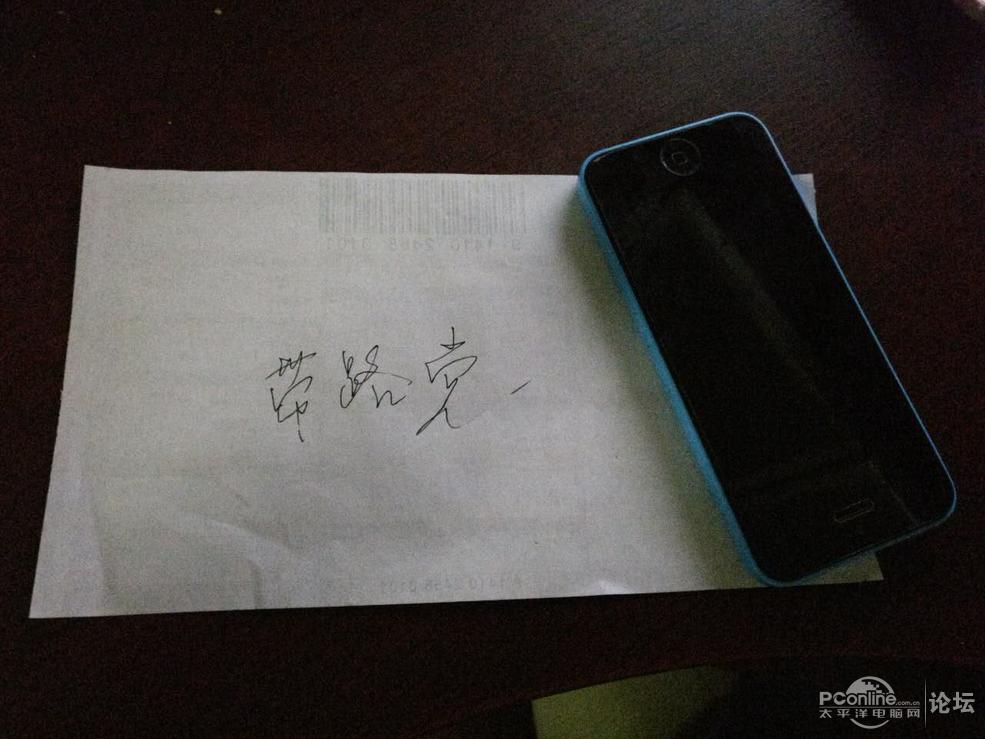 带路党
PConline.com.cn
太平洋电脑网
论坛